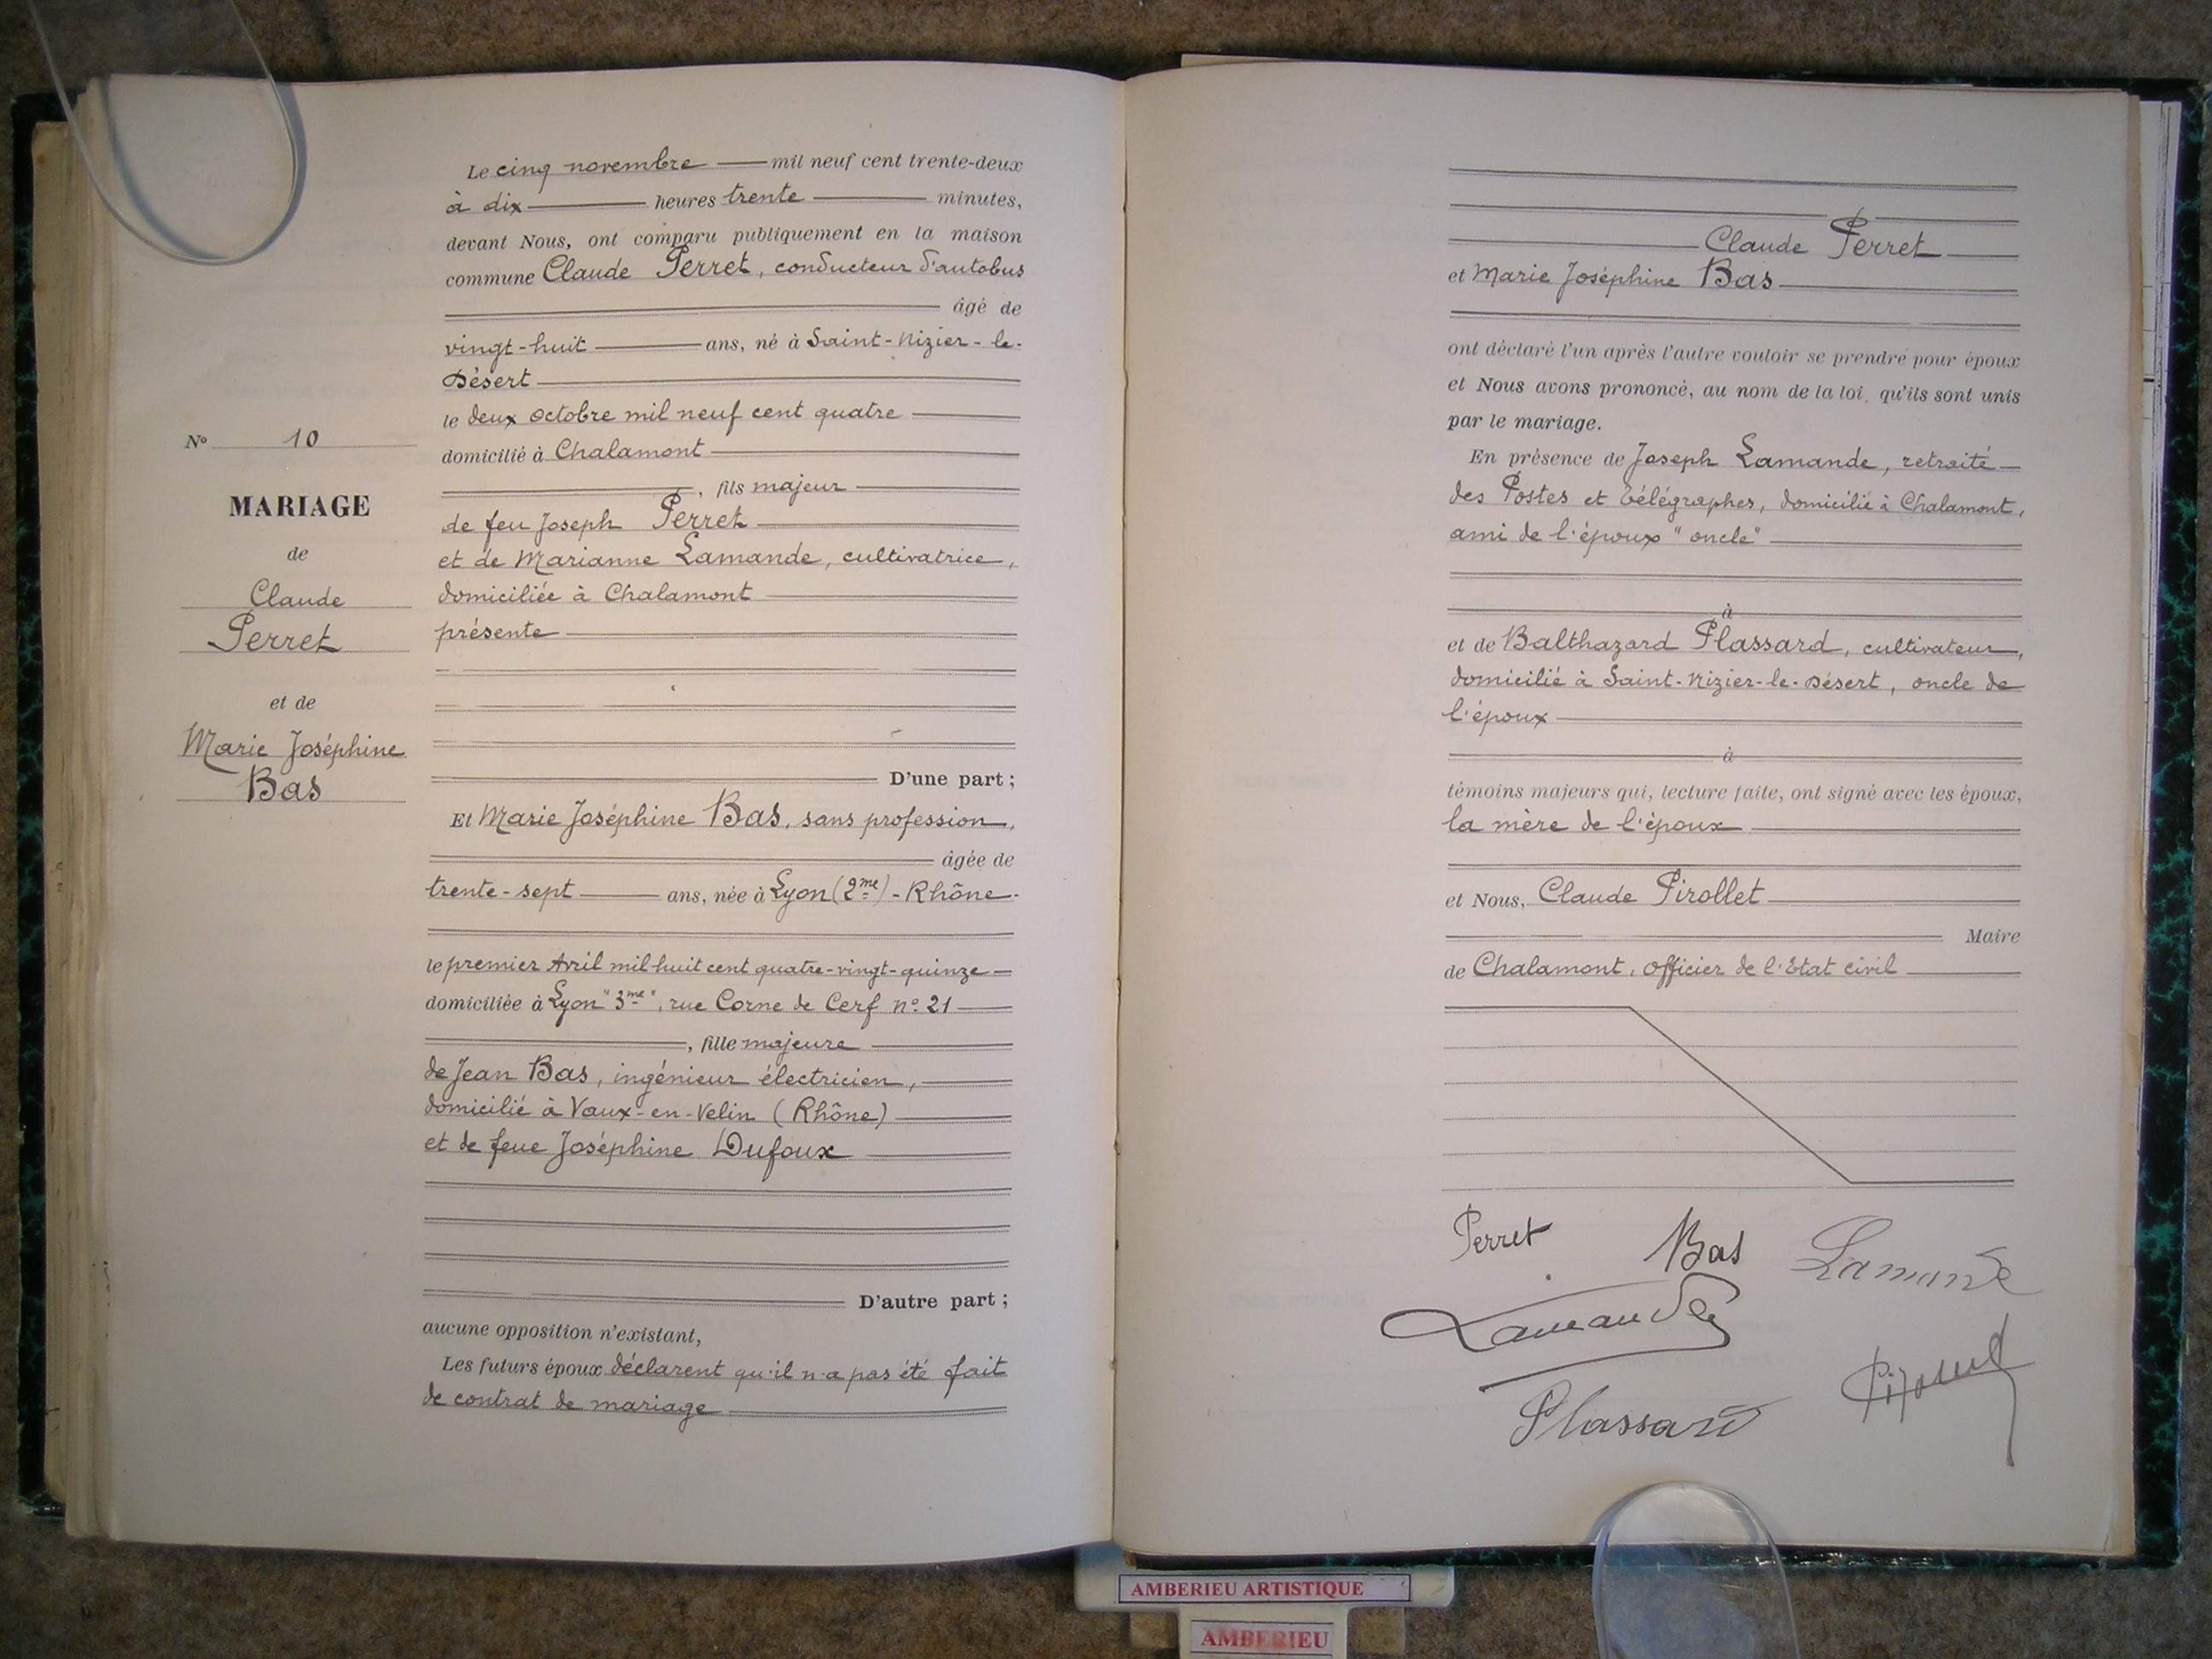 Le cinq novembre mil neuf cent trente-deux
à dix heures trente minutes,
devant Nous, ont comparu publiquement en la maison
commune Claude Perret, conducteur d'autobus
âgé de
vingt-huit ans, né à Saint-Nizier-le-
Désert
le deux octobre mil neuf cent quatre
domicilié à Chalamont
, fils majeur
de feu Joseph Perret
et de Marianne Lamande, cultivatrice,
domiciliée à Chalamont
présente
D'une part ;
Et Marie Joséphine Bas, sans profession,
âgée de
trente-sept ans, née à Lyon (2me) - Rhône
le premier Avril mil huit cent quatre-vingt-quinze
domiciliée à Lyon "3me", rue Corne de Cerf no 21
, fille majeure
de Jean Bas, ingénieur électricien,
domicilié à Vaux-en-Velin (Rhône)
et de feue Joséphine Dufoux
D'autre part ;
aucune opposition n'existant,
Les futurs époux déclarent qu'il n'a pas été fait
de contrat de mariage
No 10
MARIAGE
de
Claude
Perret
et de
Marie Joséphine
Bas
Claude Perret
et Marie Joséphine Bas
ont déclaré l'un après l'autre vouloir se prendre pour époux
et Nous avons prononcé, au nom de la loi, qu'ils sont unis
par le mariage.
En présence de Joseph Lamande, retraité
des Postes et télégraphes, domicilié à Chalamont,
ami de l'époux "oncle"
à
et de Balthazard Plassard, cultivateur,
domicilié à Saint-Nizier-le-Désert, oncle de
l'époux
à
témoins majeurs qui, lecture faite, ont signé avec les époux,
la mère de l'époux
et Nous, Claude Pirollet
Maire
de Chalamont, officier de l'Etat civil
Perret Bas Lamande
Lamande
Plassard
AMBERIEU ARTISTIQUE
AMBERIEU